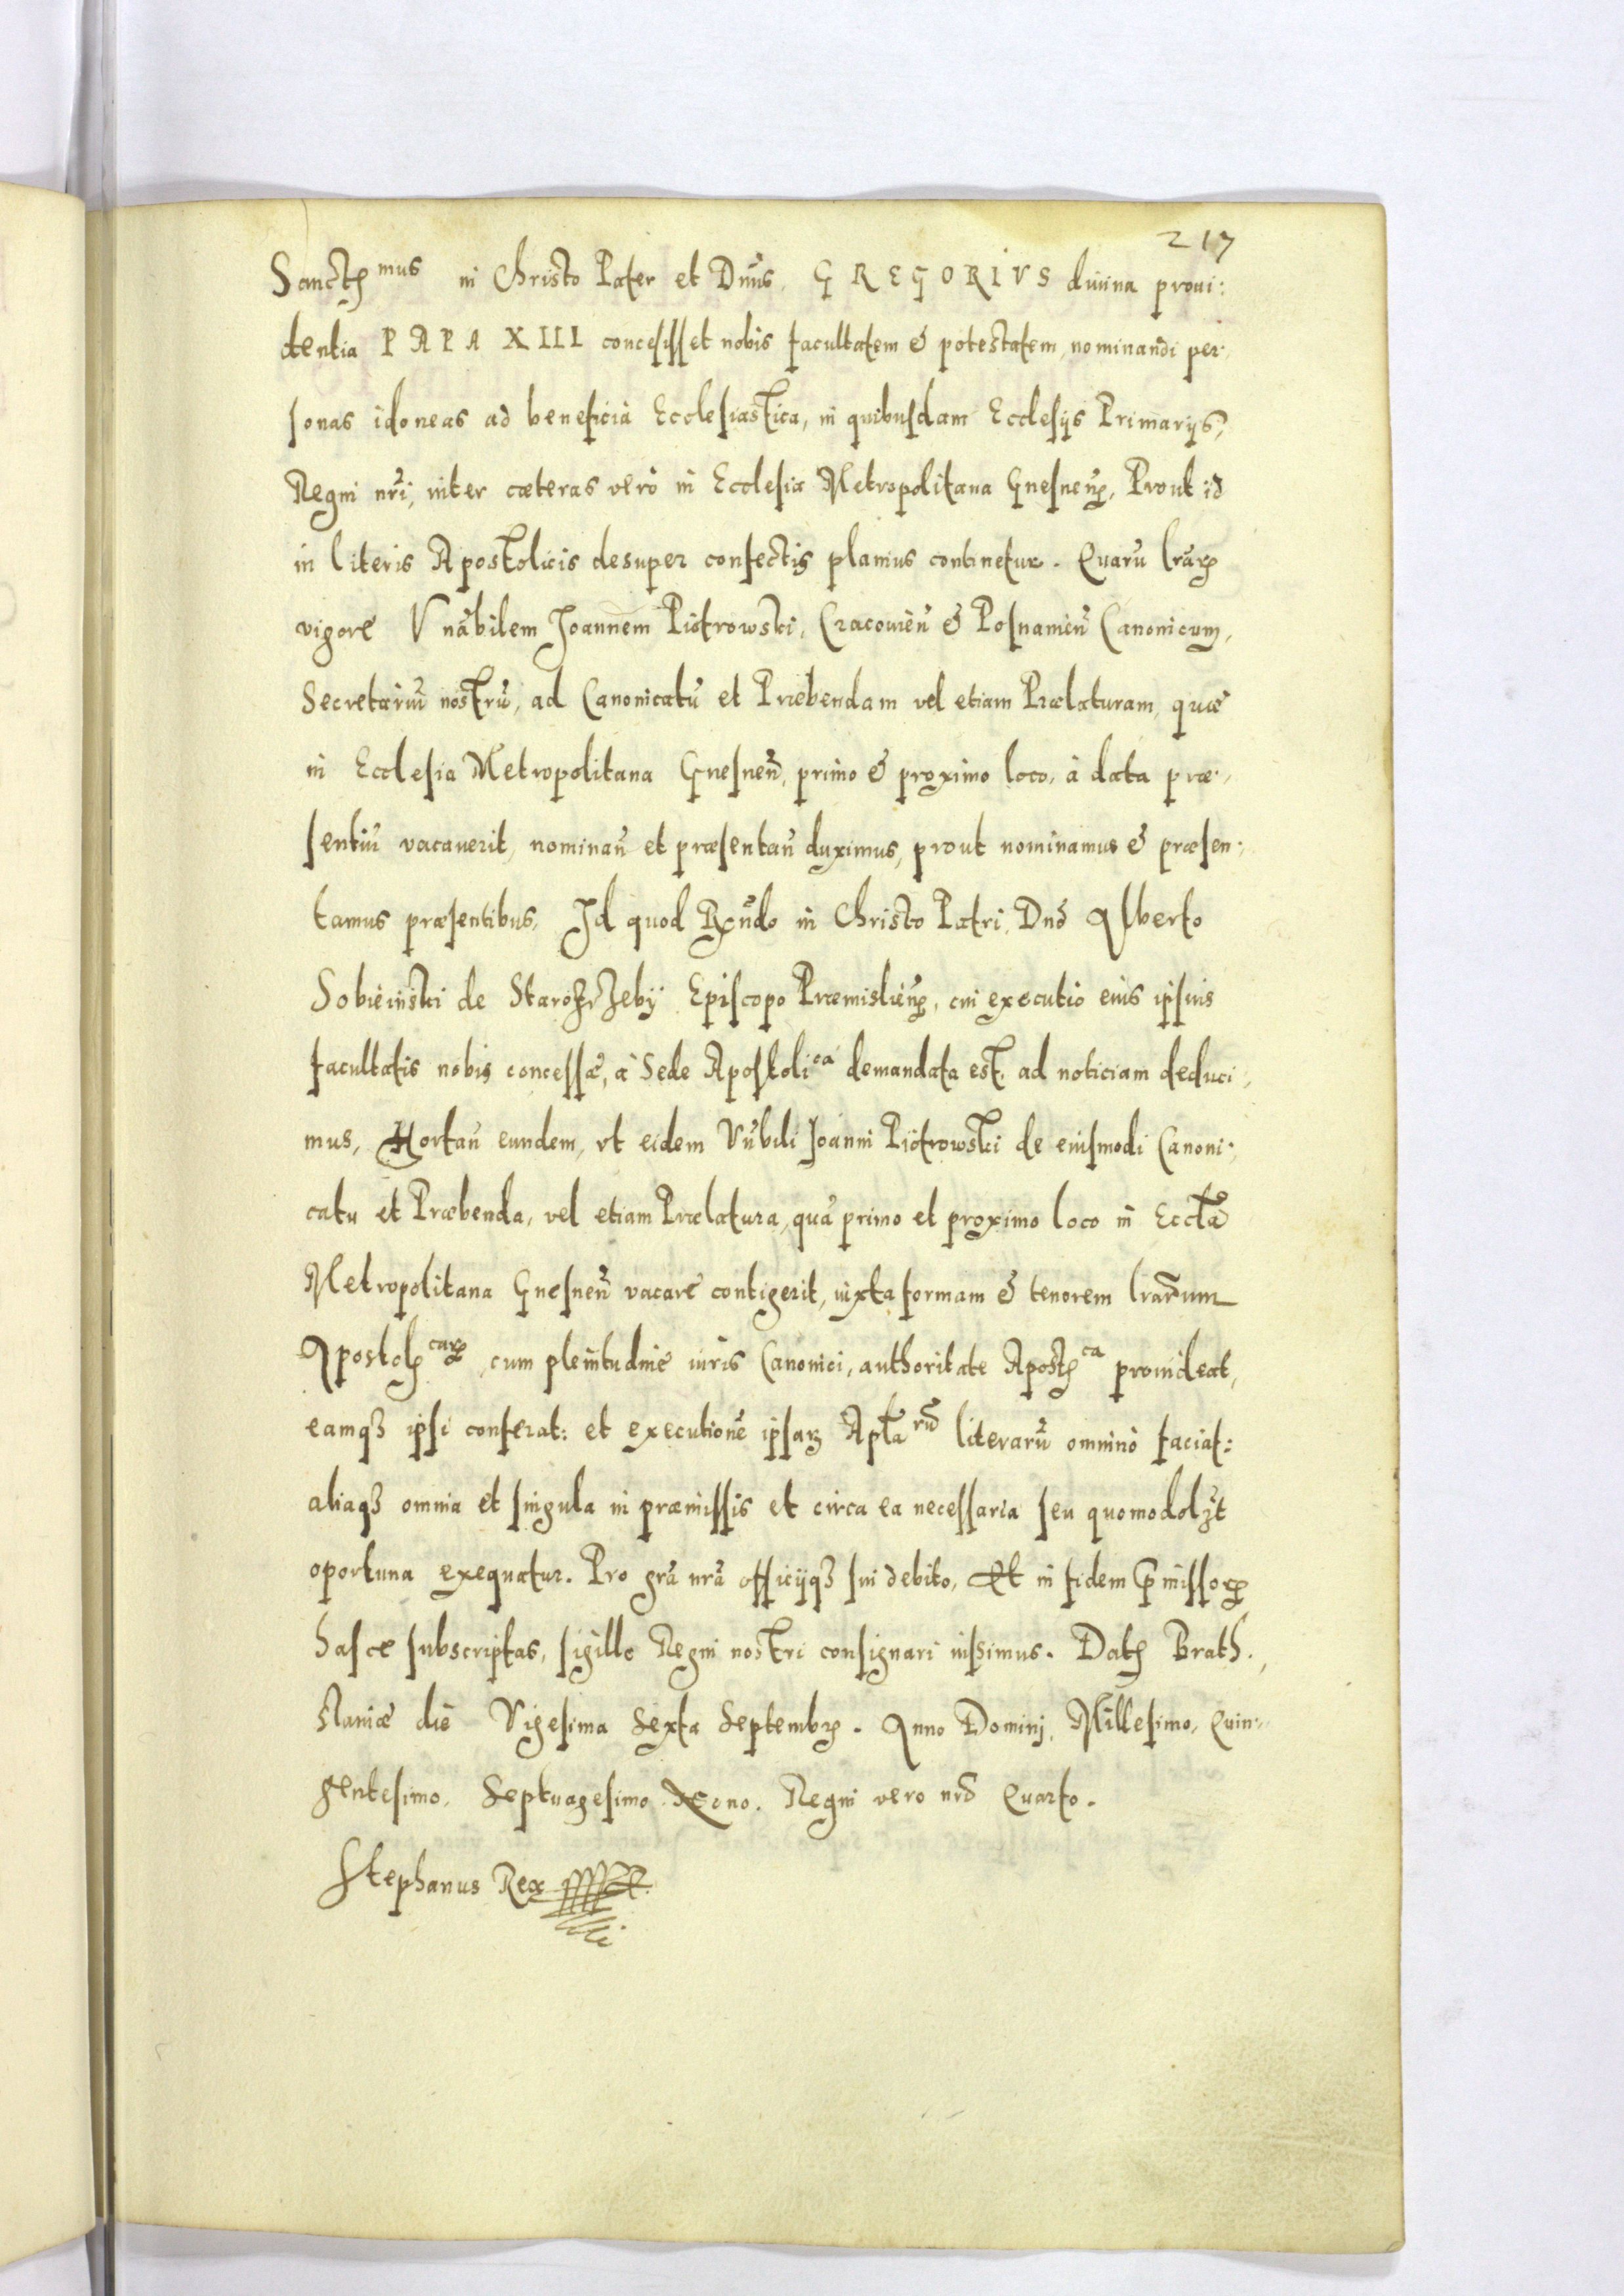 217
Sanctᵐᵘˢ in Christo Pater et Dn̄us, GREGORIVS diuina proui:
dentia PAPA XIII concesisset nobis facultatem & potestatem, nominandi per:
sonas idoneas ad beneficia Ecclesiastica, in quibusdam Ecclesijs Primarijs,
Regni nr̄i, inter cæteras verò in Ecclesia Metropolitana Gnesnen̄, Prout id
in literis Apostolicis desuper confectis planius continetur. Quarū lrāꝝ
vigore Vnābilem Joannem Piotrowski, Cracouien̄ & Posnanien̄ Canonicum,
Secretariū nostrū, ad Canonicatū et Præbendam vel etiam Prælaturam, quæ
in Ecclesia Metropolitana Gnesnen̄, primo & proximo loco, à data præ:
sentiū vacauerit, nominan̄ et præsentan̄ duximus, prout nominamus & præsen:
tamus præsentibus, Id quod Rxn̄do in Christo Patri, Dnō Alberto
Sobieinski de Starozrzeby Episcopo Præmislien̄, cui executio eius ipsius
facultatis nobis concessæ, à Sede Apostoliᶜᵃ demandata est, ad noticiam deduci,
mus, Hortan̄ eundem, vt eidem Vn̄bili Joanni Piotrowski de eiusmodi Canoni:
catu et Præbenda, vel etiam Prælatura, quā primo et proximo loco in Eccl̄a
Metropolitana Gnesnen̄ vacare contigerit, iuxta formam & tenorem lrārum
Apostolᶜᵃʳꝝ, cum plenitudine iuris Canonici, authoritate Apostᶜᵃ prouideat,
eamqꝫ ipsi conferat: et executionē ipsaꝝ Apl̄aʳū literarū omnino faciat:
aliaqꝫ omnia et singula in præmissis et circa ea necessaria seu quomodolꝫt
oportuna exequatur. Pro grā nrā officijqꝫ sui debito, Et in fidem p̄missoꝝ
hasce subscriptas, sigillo Regni nostri consignari iussimus. Dat Brath.,
slaniæ die Vigesima Sexta Septembr. Anno Dominj, Millesimo, Quin:
gentesimo, Septuagesimo Nono. Regni vero nrō Quarto.
Stephanus Rex